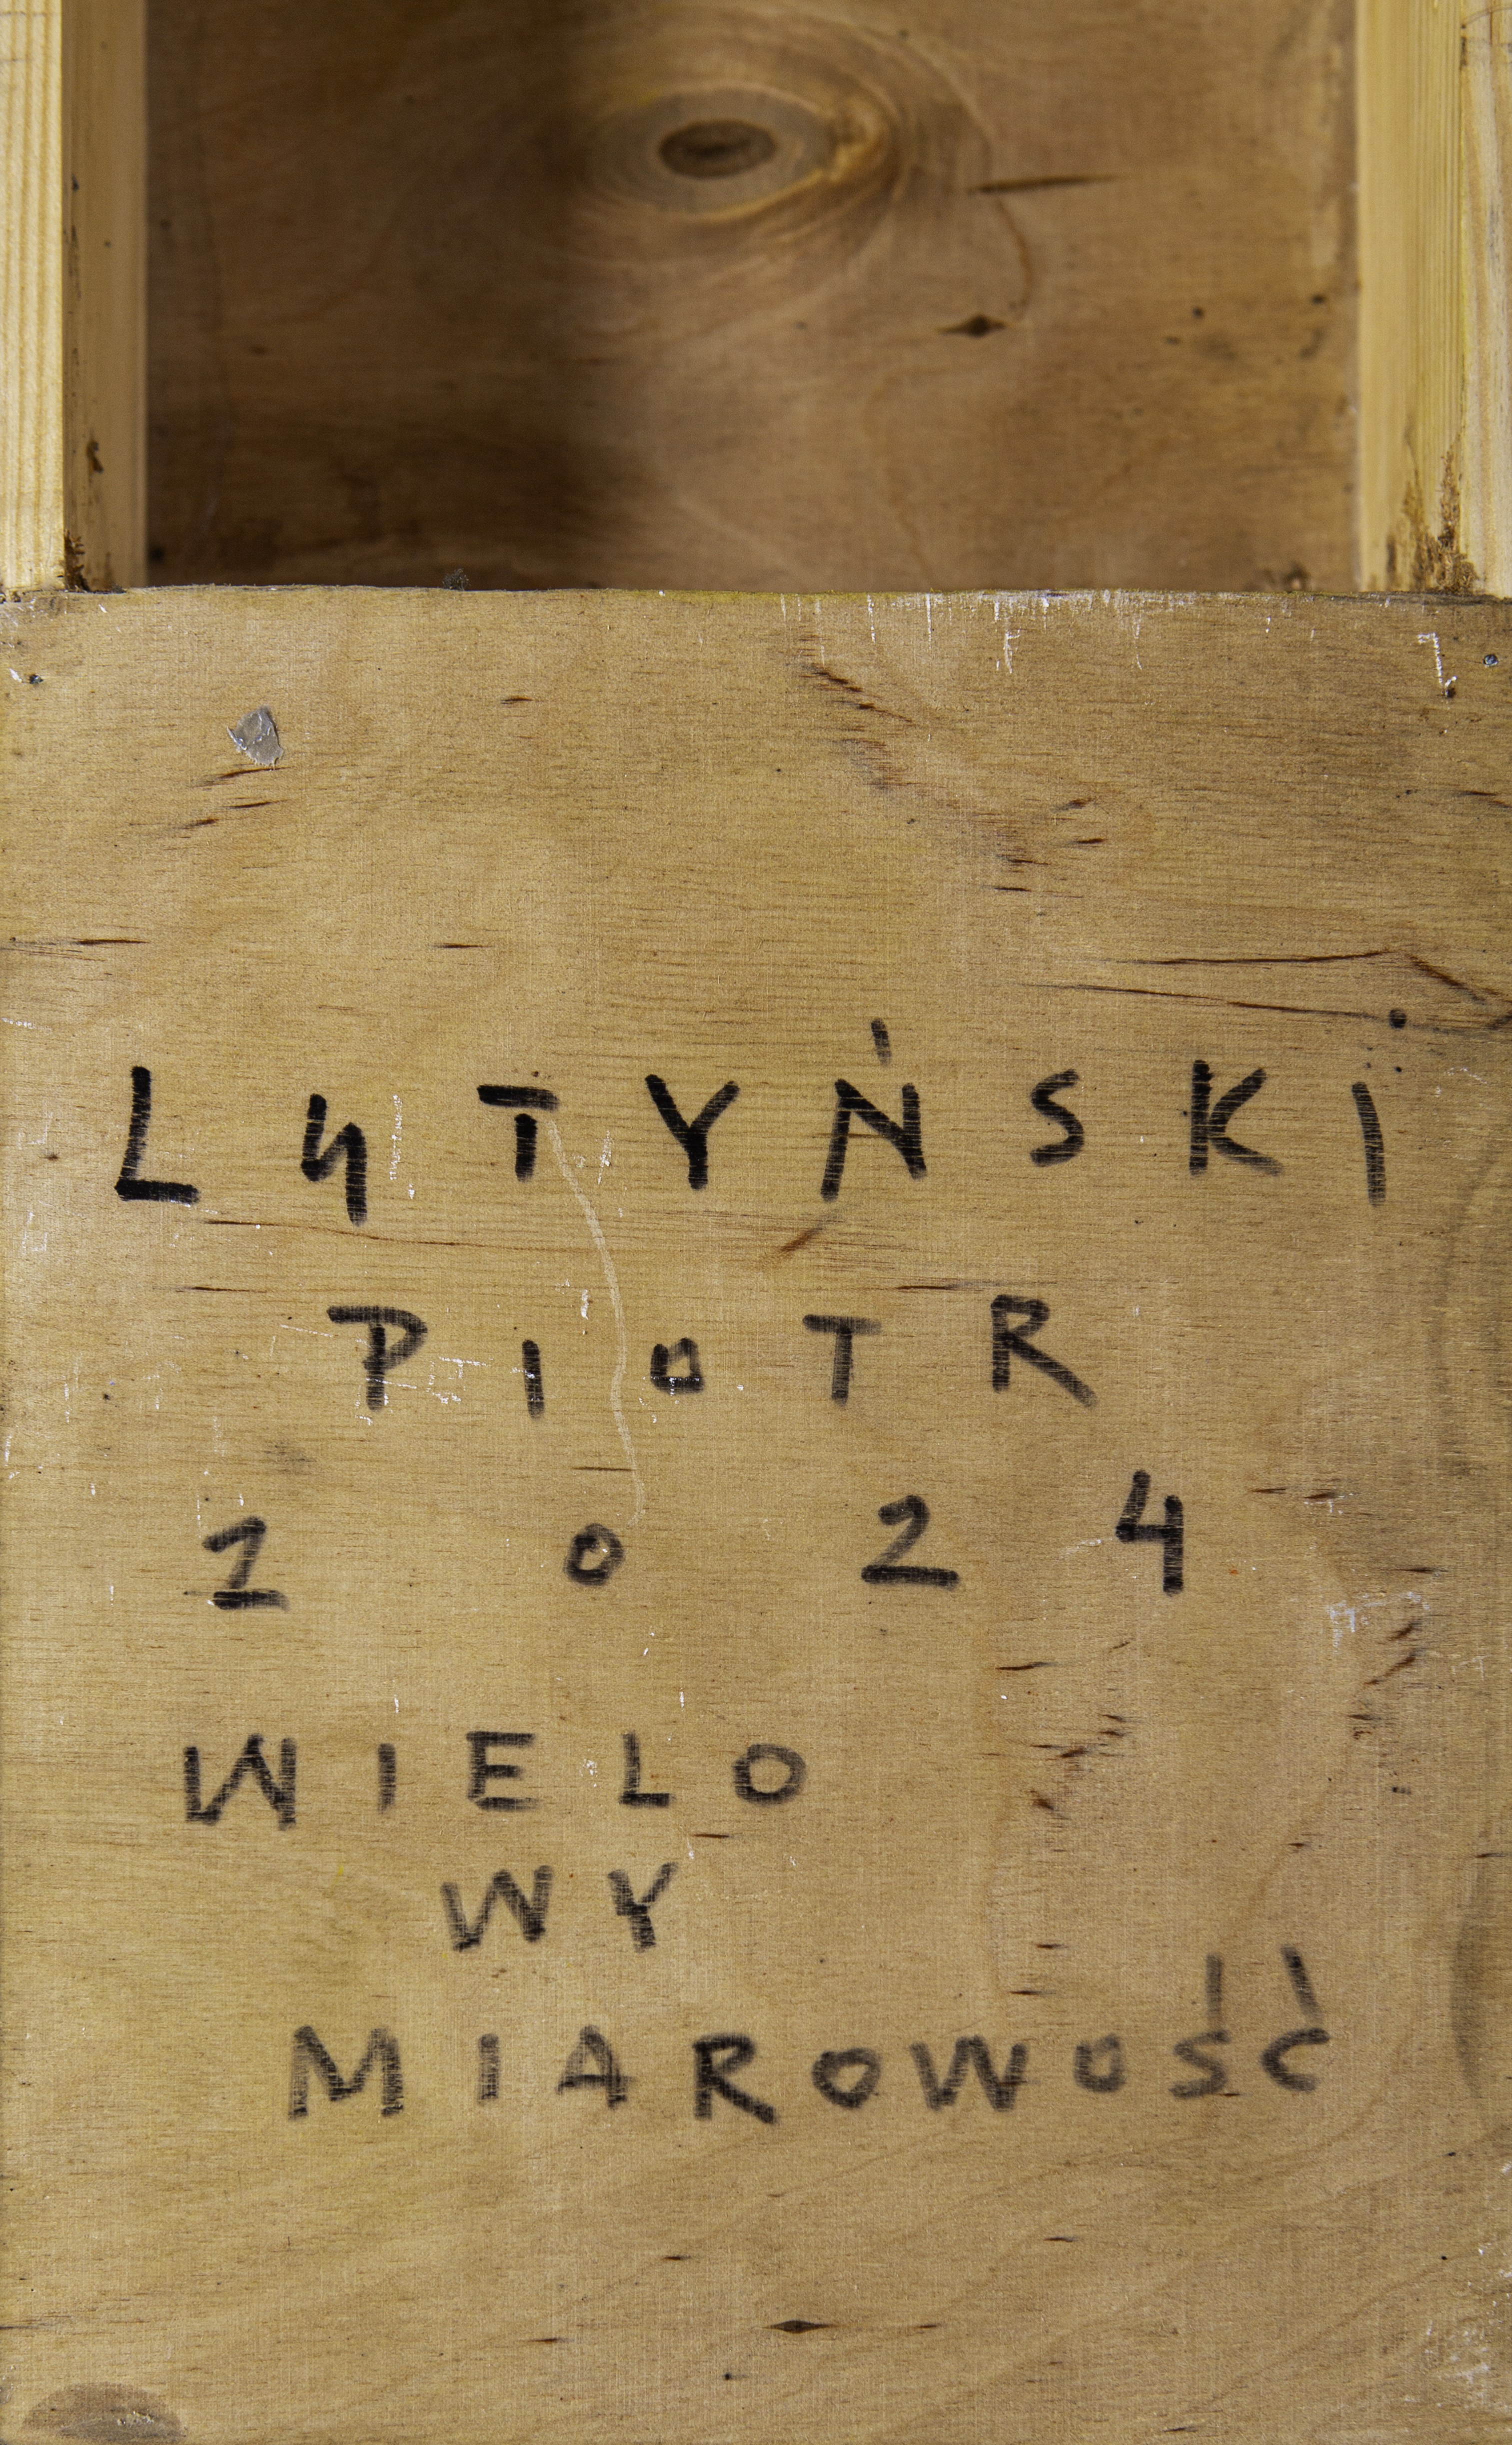 LUTYŃSKI
PIOTR
2024
WIELO
WY
MIAROWOŚĆ